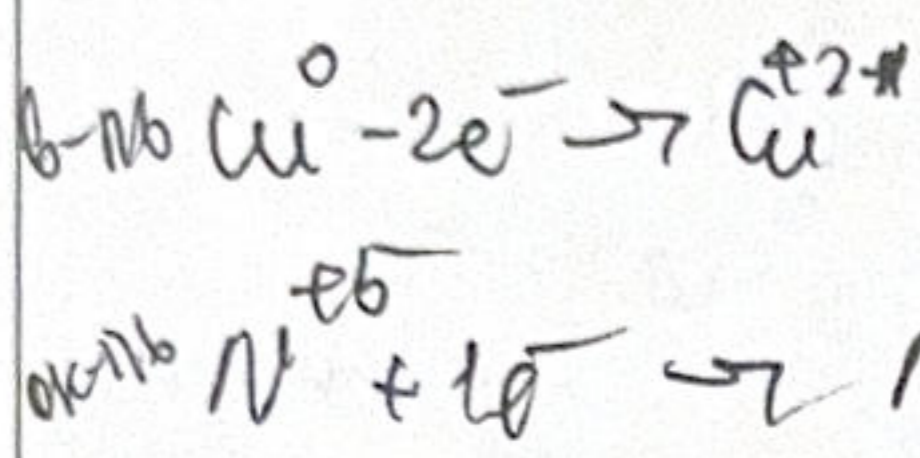 в-ль Cu⁰ -2e⁻ → Cu⁺²
ок-ль N⁺⁵ + 1e⁻ →